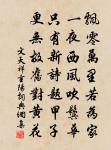 飄零萬里若為家
一夜西風吹鬢華
只有新詩題甲子
更無故舊對黃花
文天祥重陽